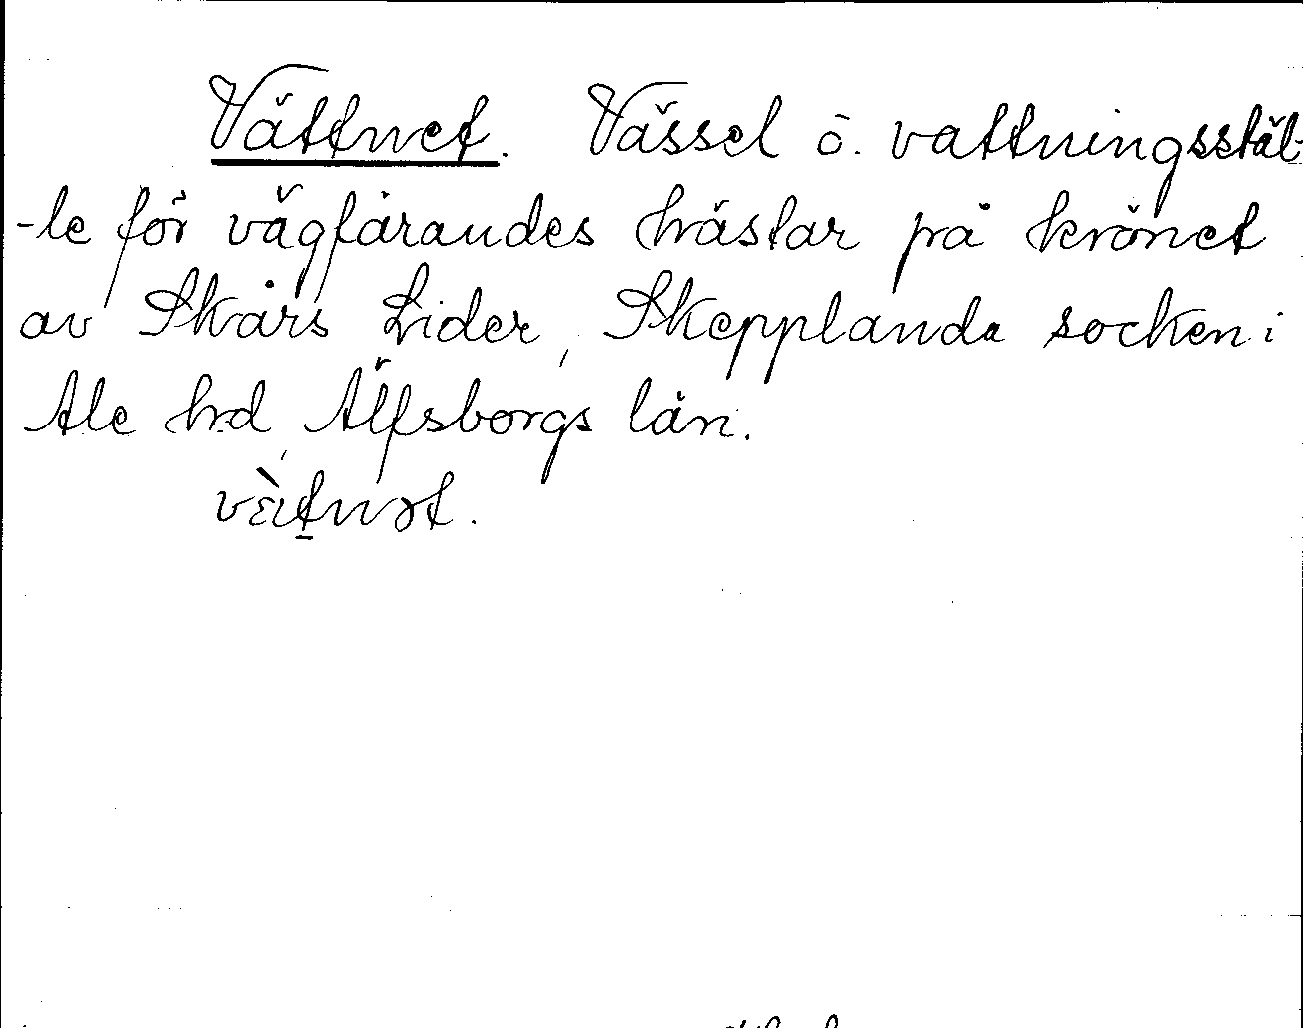 Vättnet. Vässel ö. vattningsstäl-
-le för vägfarandes hästar på krönet
av Skårs Lider, Skepplanda socken i
Ale hd, Älfsborgs län.